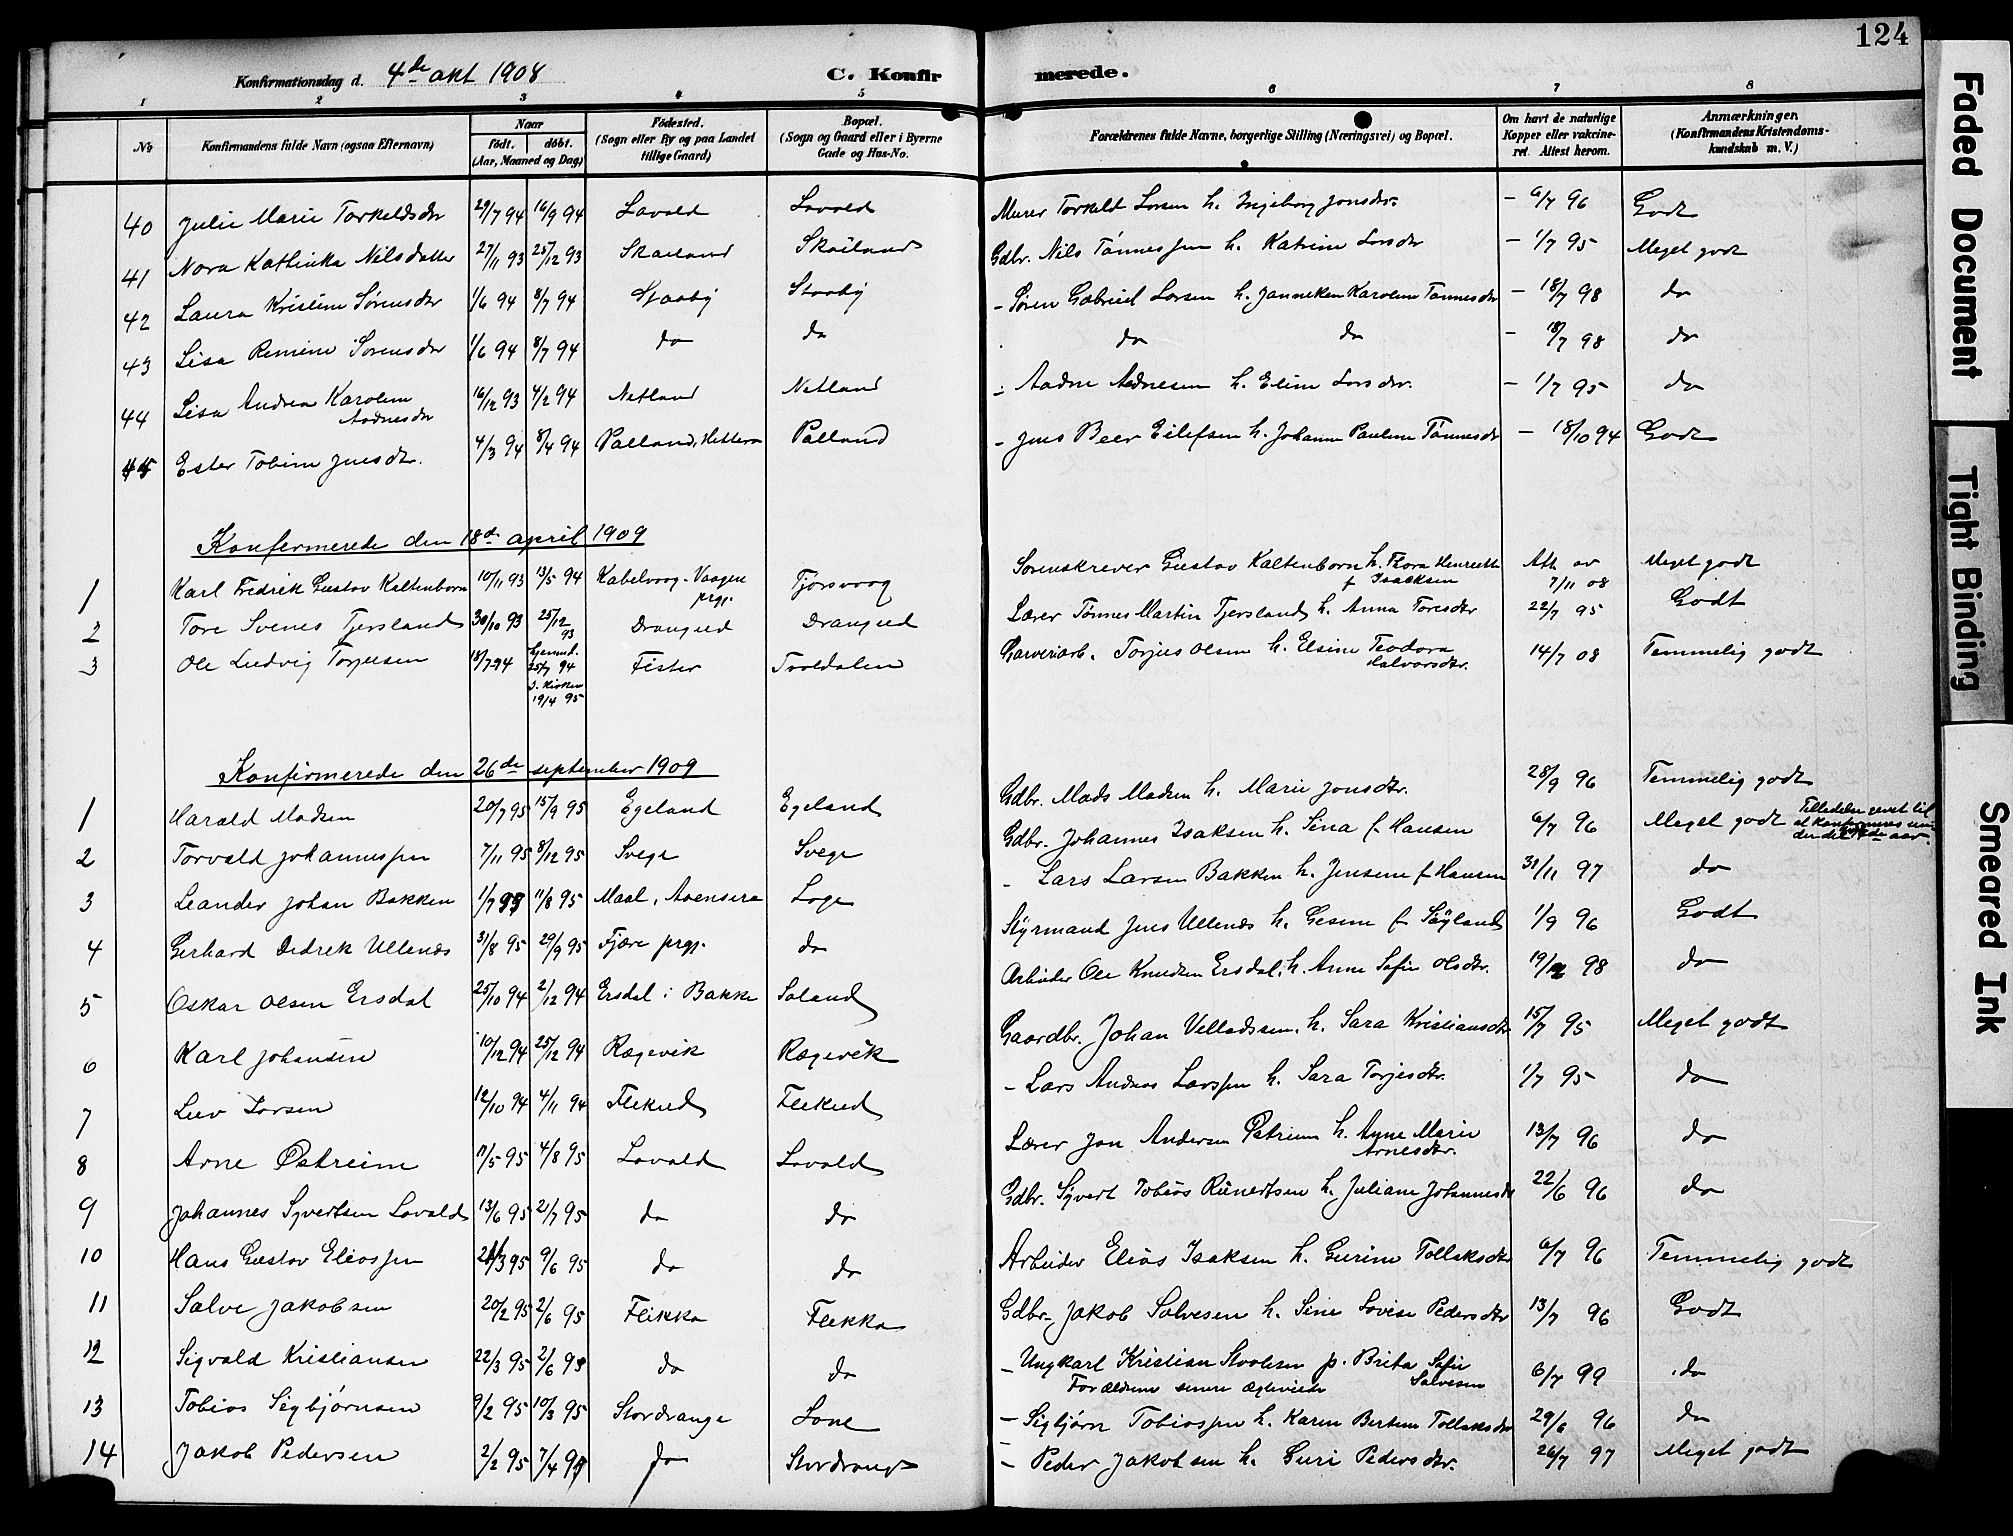 124
Konfirmationsdag d. 4de okt 1908
C. Konfirmerede.
1 2 3 4 5 6 7 8
No
Konfirmandens fulde Navn (ogsaa Efternavn)
Naar
født. døbt.
(Aar, Maaned og Dag)
Fødested.
(Sogn eller By og paa Landet
tillige Gaard)
Bopæl.
(Sogn og Gaard eller i Byerne
Gade og Hus-No.
Forældrenes fulde Navne, borgerlige Stilling (Næringsvei) og Bopæl.
Om havt de naturlige
Kopper eller vakcine-
ret Attest herom.
Anmærkninger.
(Konfirmandens Kristendoms-
kundskab m. V.)
40 Julie Marie Torkeldsdtr 29/7 94 16/9 94 Lavold Lavold Murer Torkeld Larsen h. Ingeborg Jonsdtr. - 6/7 96 Godt
41 Nora Kathinka Nilsdatter 27/11 93 25/12 93 Skailand Skailand Gdbr. Nils Tønnessen h. Katrine Larsdtr - 1/7 95 Meget godt
42 Laura Kristine Sørensdtr 1/6 94 8/7 94 Staaby Staaby - Søren Gabriel Larsen h. Janneken Karoline Tønnesdtr - 18/7 98 do
43 Lisa Remine Sørensdtr 1/6 94 8/7 94 do do do do - 18/7 98 do
44 Lisa Andrea Karoline Aadnesdtr 16/12 93 4/2 94 Netland Netland - Aadne Aadnesen h. Eline Larsdtr. - 1/7 95 do
45 Ester Tobine Jensdtr. 4/3 94 8/4 94 Palland, Hitterø Palland - Jens Beer Eilefsen h. Johanne Pauline Tønnesdtr - 18/10 94 Godt
Konfermerede den 18de april 1909
1 Karl Fredrik Gustav Kaltenborn 10/11 93 13/5 94 Kabelvaag. Vaagen prgj. Tjørsvaag Sorenskriver Gustav Kaltenborn h. Thora Henriette f Isacksen Att. av 7/11 08 Meget godt
2 Tore Svenes Tjersland 30/10 93 25/12 93 Drangeid Drangeid Lærer Tønnes Martin Tjersland h. Anna Toresdtr 22/7 95 Godt
3 Ole Ludvig Torjussen 18/7 94 hjemmd. 25/7 94 I. Kirken 19/4 95 Fister Troldalen Garveriarb. Torjus Olsen h. Elsine Teodora Halvorsdtr. 14/7 08 Temmelig godt
Konfirmerede den 26de september 1909
1 Harald Madsen 20/7 95 15/9 95 Egeland Egeland Gdbr. Mads Madsen h. Marie Jonsdtr. 28/9 96 Temmelig godt
2 Torvald Johannessen 7/11 95 8/12 95 Svege Svege Gdbr. Johannes Isaksen h. Sina f Hansen 6/7 96 Meget godt Tilladelse gevet til at konfirmeres un der det aar.
3 Leander Johan Bakken 1/7 95 11/8 95 Maal, Aaensera Loge - Lars Larsen Bakken h. Jensine f Hansen 31/11 97 do
4 Gerhard Didrek Ullenæs 31/8 95 29/9 95 Fjære prgj. do Styrmand Jens Ullenæs h. Gesine f Søyland 1/9 96 Godt
5 Oskar Olsen Ersdal 25/10 94 2/12 94 Ersdal i Bakke Saland Arbeider Ole Knudsen Ersdal, h. Anne Sofie Olsdtr. 98 do
6 Karl Johansen 10/12 94 25/12 94 Rægevik Rægevik Gaardbr. Johan Velladssen. h. Sara Kristiansdtr 15/7 95 Meget godt
7 Leiv Larsen 12/10 94 4/11 94 Flikeid Flikeid - Lars Andreas Larssen h. Sara Torjesdtr. 1/7 95 do
8 Arne Østreim 11/5 95 4/8 95 Lavold Lavold Lærer Jon Andersen Østreim h. Anne Marie Arnesdtr. 13/7 96 do
9 Johannes Syvertsen Lavold 13/6 95 21/7 95 do do Gdbr. Syvert Tobias Runertsen h. Juliane Johannesdtr 22/6 96 do
10 Hans Gustav Eliassen 95 9/6 95 do do Arbeider Elias Isaksen h. Gurine Tollaksdtr 6/7 96 Temmelig godt
11 Salve Jakobsen 20/2 95 2/6 95 Flikka Flikka Gdbr- Jakob Salvesen h. Sine Lovise Pedersdtr 13/7 96 Godt
12 Sigvald Kristiansen 22/3 95 2/6 95 do do - Ungkarl Kristian p. Brita Sofie Salvesen Forældrene senere ægteviede 6/7 99 do
13 Tobias Sigbjørnsen 9/2 95 10/3 95 Stordrange Lone - Sigbjørn Tobiassen h. Karen Bertine Tollaksdtr 29/6 96 do
14 Jakob Pedersen 2/2 95 7/4 95 do Stordrange - Peder Jakobsen h. Guri Pedersdtr. 26/7 97 Meget godt
Faded Document
Tight Binding
Smeared Ink